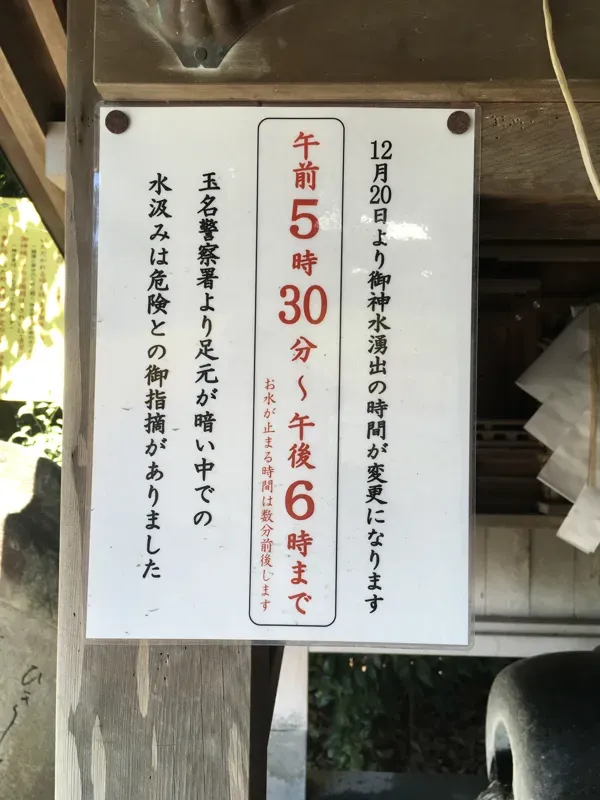 12月20日より御神水湧出の時間が変更になります
午前5時30分～午後6時まで
お水が止まる時間は数分前後します
玉名警察署より足元が暗い中での
水汲みは危険との御指摘がありました